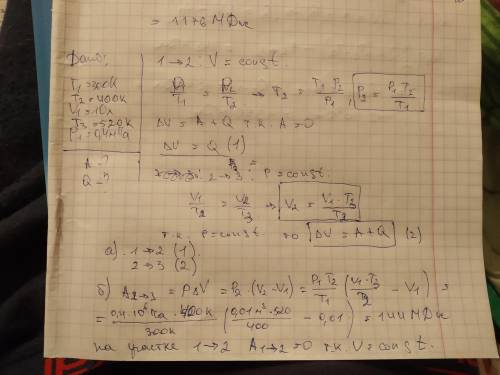 = 1176 МДж
Дано:
T₁ = 300К
T₂ = 400К
V₁ = 10л
T₃ = 520К
P₁ = 0,4мПа
A - ?
Q - ?
1→2. V = const.
P₁/T₁ = P₂/T₂ → T₂ = T₁ P₂/P₁, P₂ = P₁ T₂/T₁
ΔU = A + Q т.к. A = 0
ΔU = Q (1)
2→3: P = const.
V₁/T₂ = V₂/T₃ → V₂ = V₁ · T₃/T₂
т.к. P = const. то ΔU = A + Q (2)
а). 1→2 (1).
2→3 (2)
б) A₂→₃ = PΔV = P₂ · (V₂ - V₁) = P₁ T₂/T₁ (V₁ · T₃/T₂ - V₁) =
= 0,4 · 10⁶ Па · 400К/300К (0,01м³ · 520/400 - 0,01) = 1ЦЦ МДж
на участке 1→2 A₁→₂ = 0 т.к. V = const.